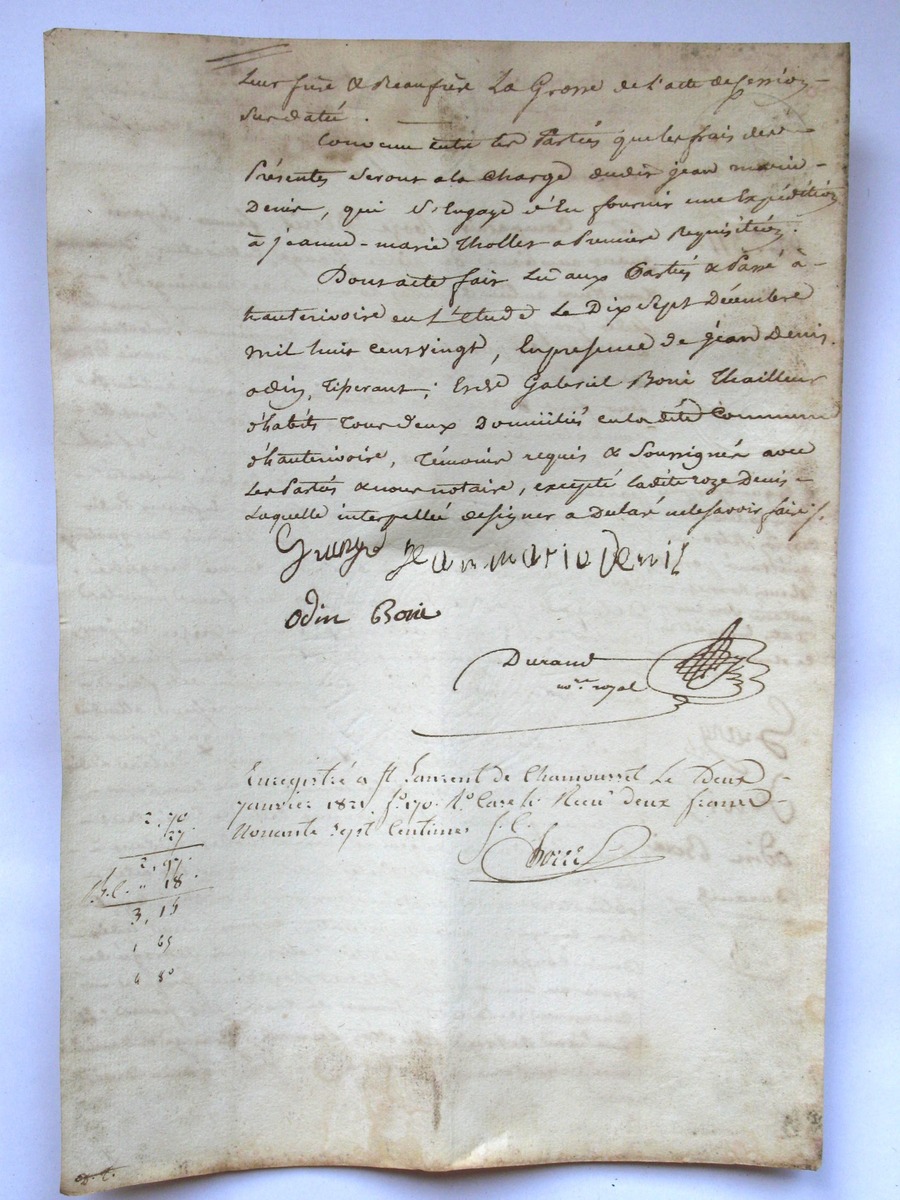 Leur frère & Beaufrère La Grosse de l'acte de Cession
Susdaté.
Convenu entre les Partiés que les frais des
Présentes Seront a la Charge dudit jean marie
Denis, qui S'Engage d'En fournir une Expédition
à jeanne-marie Thollet a Premiere Requisition.
Dont acte fait Lu aux Partiés & Passé à
hauterivoire en L'etude Le Dix Sept Décembre
mil huit cent vingt, En presence de jéan Denis
odin, Tiserant; Et de Gabriel Boni Thailleur
d'habits Tous deux Domiciliés en ladite Commune
d'hauterivoire, Témoins requis & Soussignés avec
Les Partiés & nous notaire, excepté ladite roze Denis
Laquelle interpellée de signer a Déclaré ne le savoir faire ./.
jean marie denis
odin Boni
Durand
not.re royal
Enregistré a St Laurent de Chamousset Le Deux
janvier 1821 f.o 170. R.o Case Recu deux francs
Nonante Sept Centimes
2, 70
27
2, 97
18
3, 15
1 65
4 80